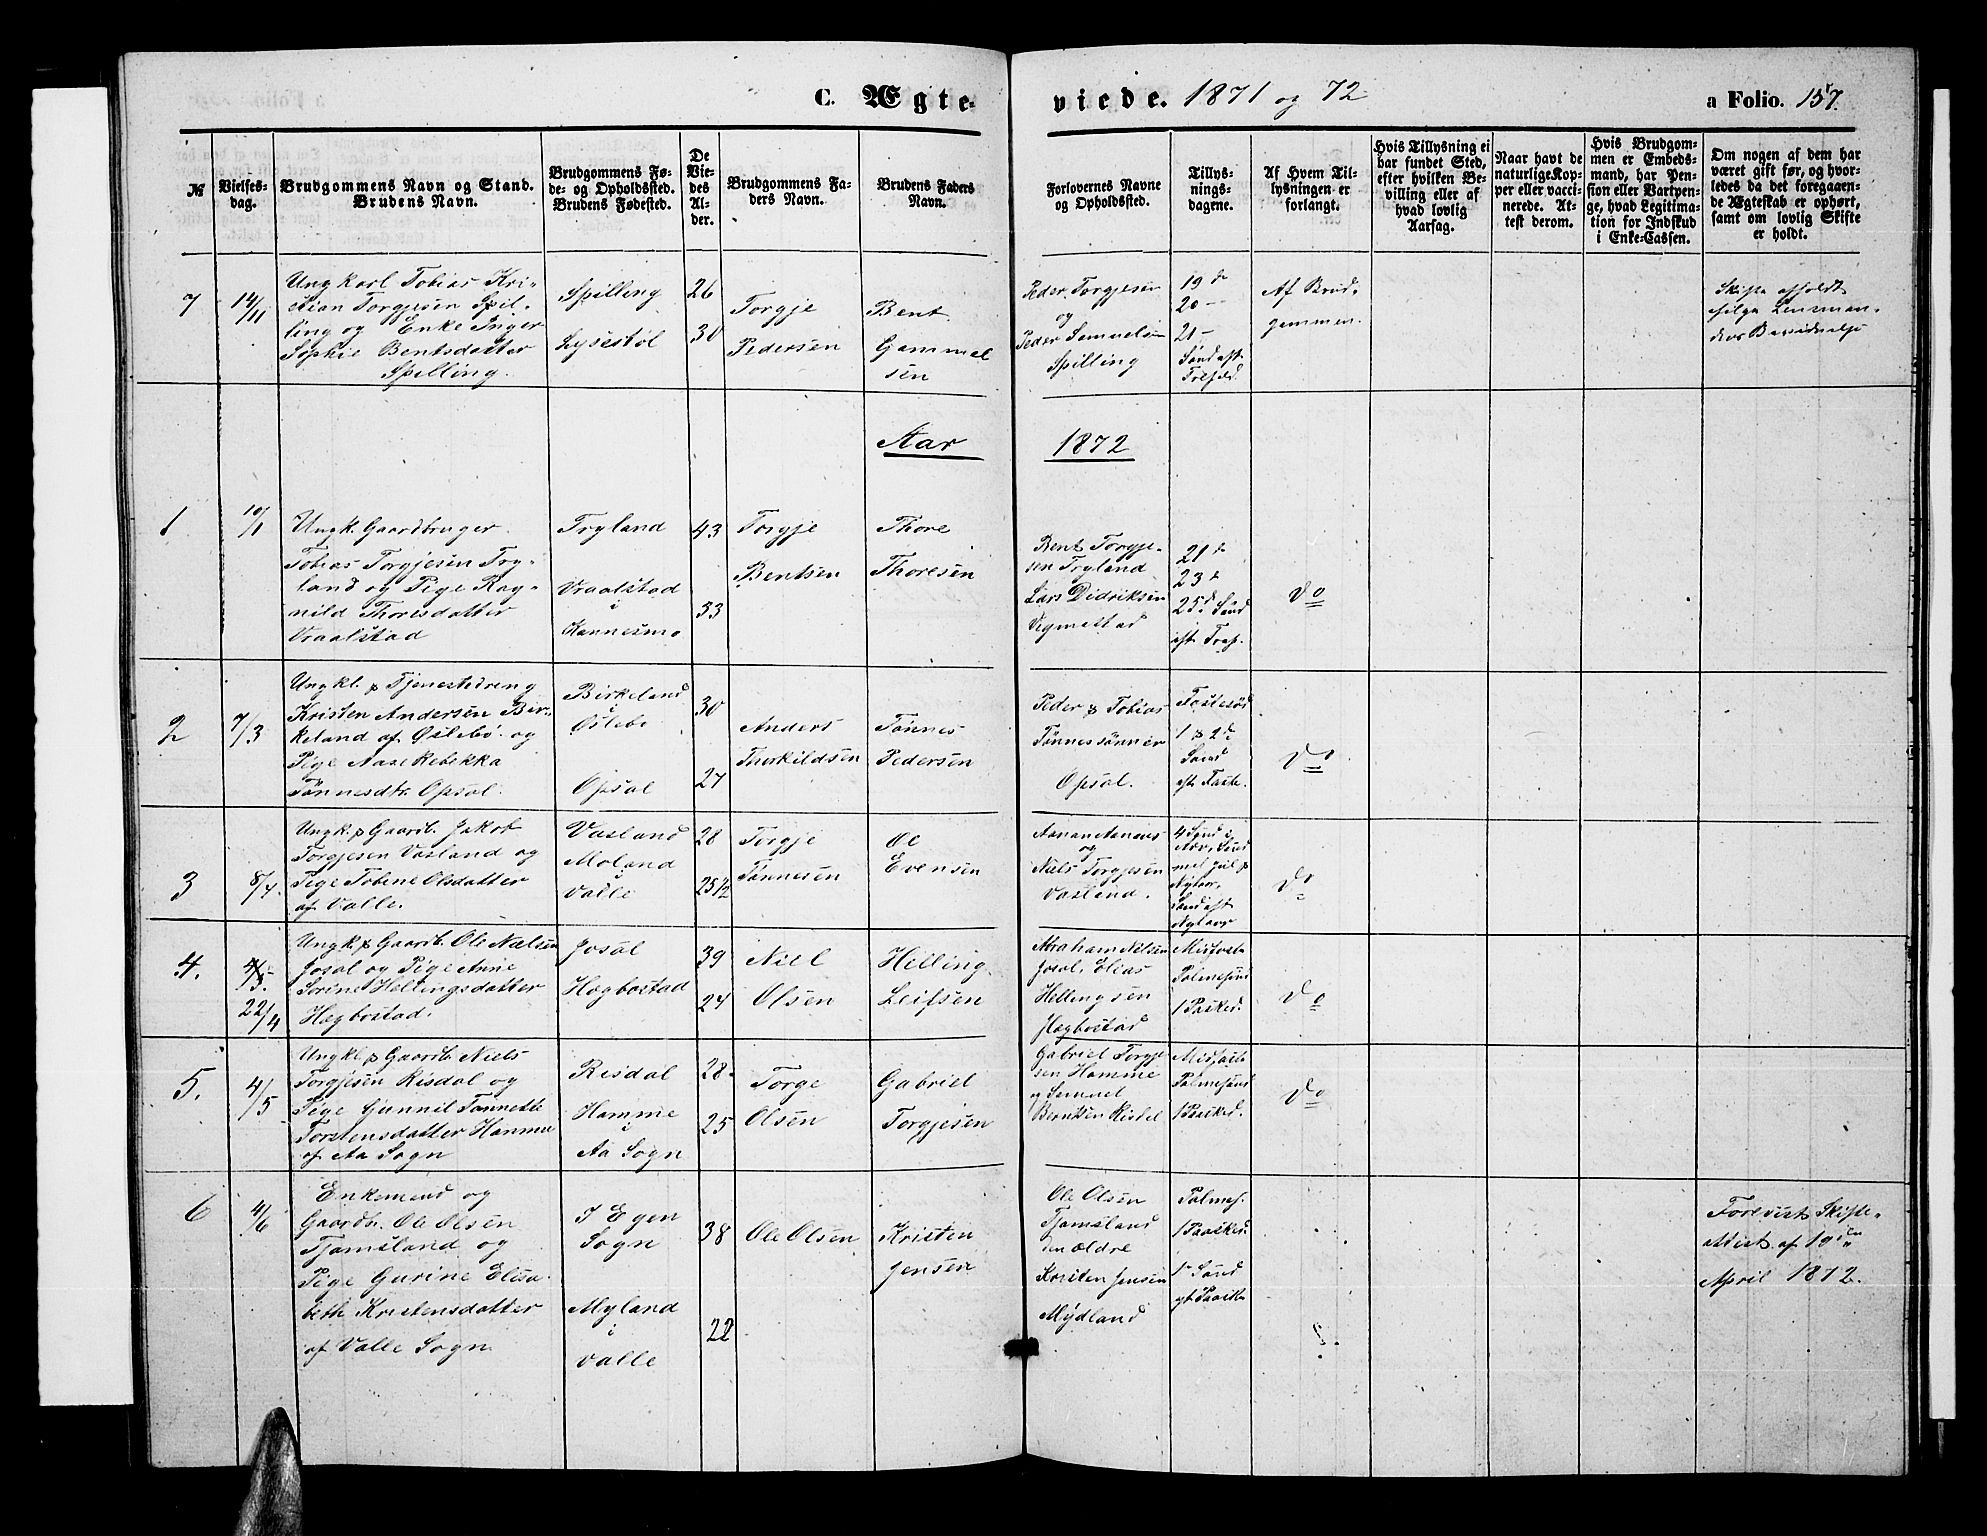 C. Ægteviede. 1871 og 72
a Folio. 157.
№
Vielses-
dag.
Brudgommens Navn og Stand.
Brudens Navn.
Brudgommens Fø-
de- og Opholdssted.
Brudens Fødested.
De
Vie-
des
Al-
der.
Brudgommens Fa-
ders Navn.
Brudens Faders
Navn.
Forlovernes Navne
og Opholdssted.
Tillys-
nings-
dagene.
Af Hvem Til-
lysningen er
forlangt.
Hvis Tillysning ei
har fundet Sted,
efter hvilken Be-
villing eller af
hvad lovlig
Aarsag.
Naar havt de
naturlige Kop-
per eller vacci-
nerede. At-
test derom.
Hvis Brudgom-
men er Embeds-
mand, har Pen-
sion eller Vartpen-
ge, hvad Legitima-
tion for Indskud
i Enke-Cassen.
Om nogen af dem har
været gift før, og hvor-
ledes da det foregaaen-
de Ægteskab er ophørt,
samt om lovlig Skifte
er holdt.
7
14/11
Ungkarl Tobias Kri-
stian Torgjesen Spil-
ling og Enke Inger
Sophie Bentsdatter
Spilling.
Spilling
Lysestøl
26
30
Torgje
Pedersen
Bent
Gammel
sen
Peder Torgjesen
og
Peder Samuelsen
Spilling
19de
20 —
21 —
Sønd. eft.
Trefold.
Af Brud-
gommen.
Skifte afholdt
ifølge Lensman-
dens
Aar 1872
1
10/1
Ungk. Gaardbruger
Tobias Torgjesen Try-
land og Pige Rag-
nild Thoresdatter
Vraalstad
Tryland
Vraalstad
i
Hannesmo
43
33
Torgje
Bentsen
Thore
Thoresen
Bent Torgje-
sen Tryland
Lars Didriksen
Vigmostad
21de
23de
25de Sønd
eft. Tref.
Do
2
7/3
Ungkl. & Tjenestedreng
Kristen Andersen Bir-
keland af Øslebø og
Pige Aase Rebekka
Tønnesdtr. Opsal.
Birkeland
i
Øslebø
Opsal
30
27
Anders
Thorkildsen
Tønnes
Pedersen
Peder & Tobias
Tønnessønner
Opsal.
Fastesød
1 & 2de
Sønd
eft. Faste.
Do
3
8/4.
Ungk. & Gaardb. Jakob
Torgjesen Vasland og
Pige Tobine Olsdatter
af Valle.
Vasland
Moland
i
Valle
28
25 1/2
Torgje
Tønnesen
Ole
Evensen
og
Niels Torgjesen
Vasland.
4 Sønd i
Adv., Sønd
mel. Jul &
Nytaar,
Sønd eft.
Nytaar
Do
4.
22/4
Ungk. & Gaardb. Ole Nielsen
Josal og Pige Anne
Serine Hellingsdatter
Hægbostad.
Josal
Hægbostad
39
24
Niel
Olsen
Helling
Leifsen
Abraham Nielsen
Josal, Elias
Hellingsen
Hægbostad
Midfaste
Palmesønd
1 Paasked.
Do
5.
4/5
Ungkl. & Gaardb. Niels
Torgjesen Risdal og
Pige Gunnil Tonnette
Torstensdatter Hamme
af Aa Sogn
Risdal
Hamme
i
Aa Sogn
28
25
Torge
Olsen
Gabriel
Torgjesen
Gabriel Torgje-
sen Hamme
og Samuel
Berntsen
Midfaste
Palmesønd
1 Paasked.
Do
6
4/6
Enkemand og
Gaardb. Ole Olsen
Tjomsland og
Pige Gurine Elisa-
beth Kristensdatter
af Valle Sogn
I Egen
Sogn
Myland
i
Valle
38
22
Ole Olsen
Kristen
Jensen
Ole Olsen
Tjomsland
den ældre
Kristen Jensen
Mydland
Palmes.
1 Paasked.
1 Sønd
eft Paaske
Forevist Skifte-
attest af 19den
April 1872.